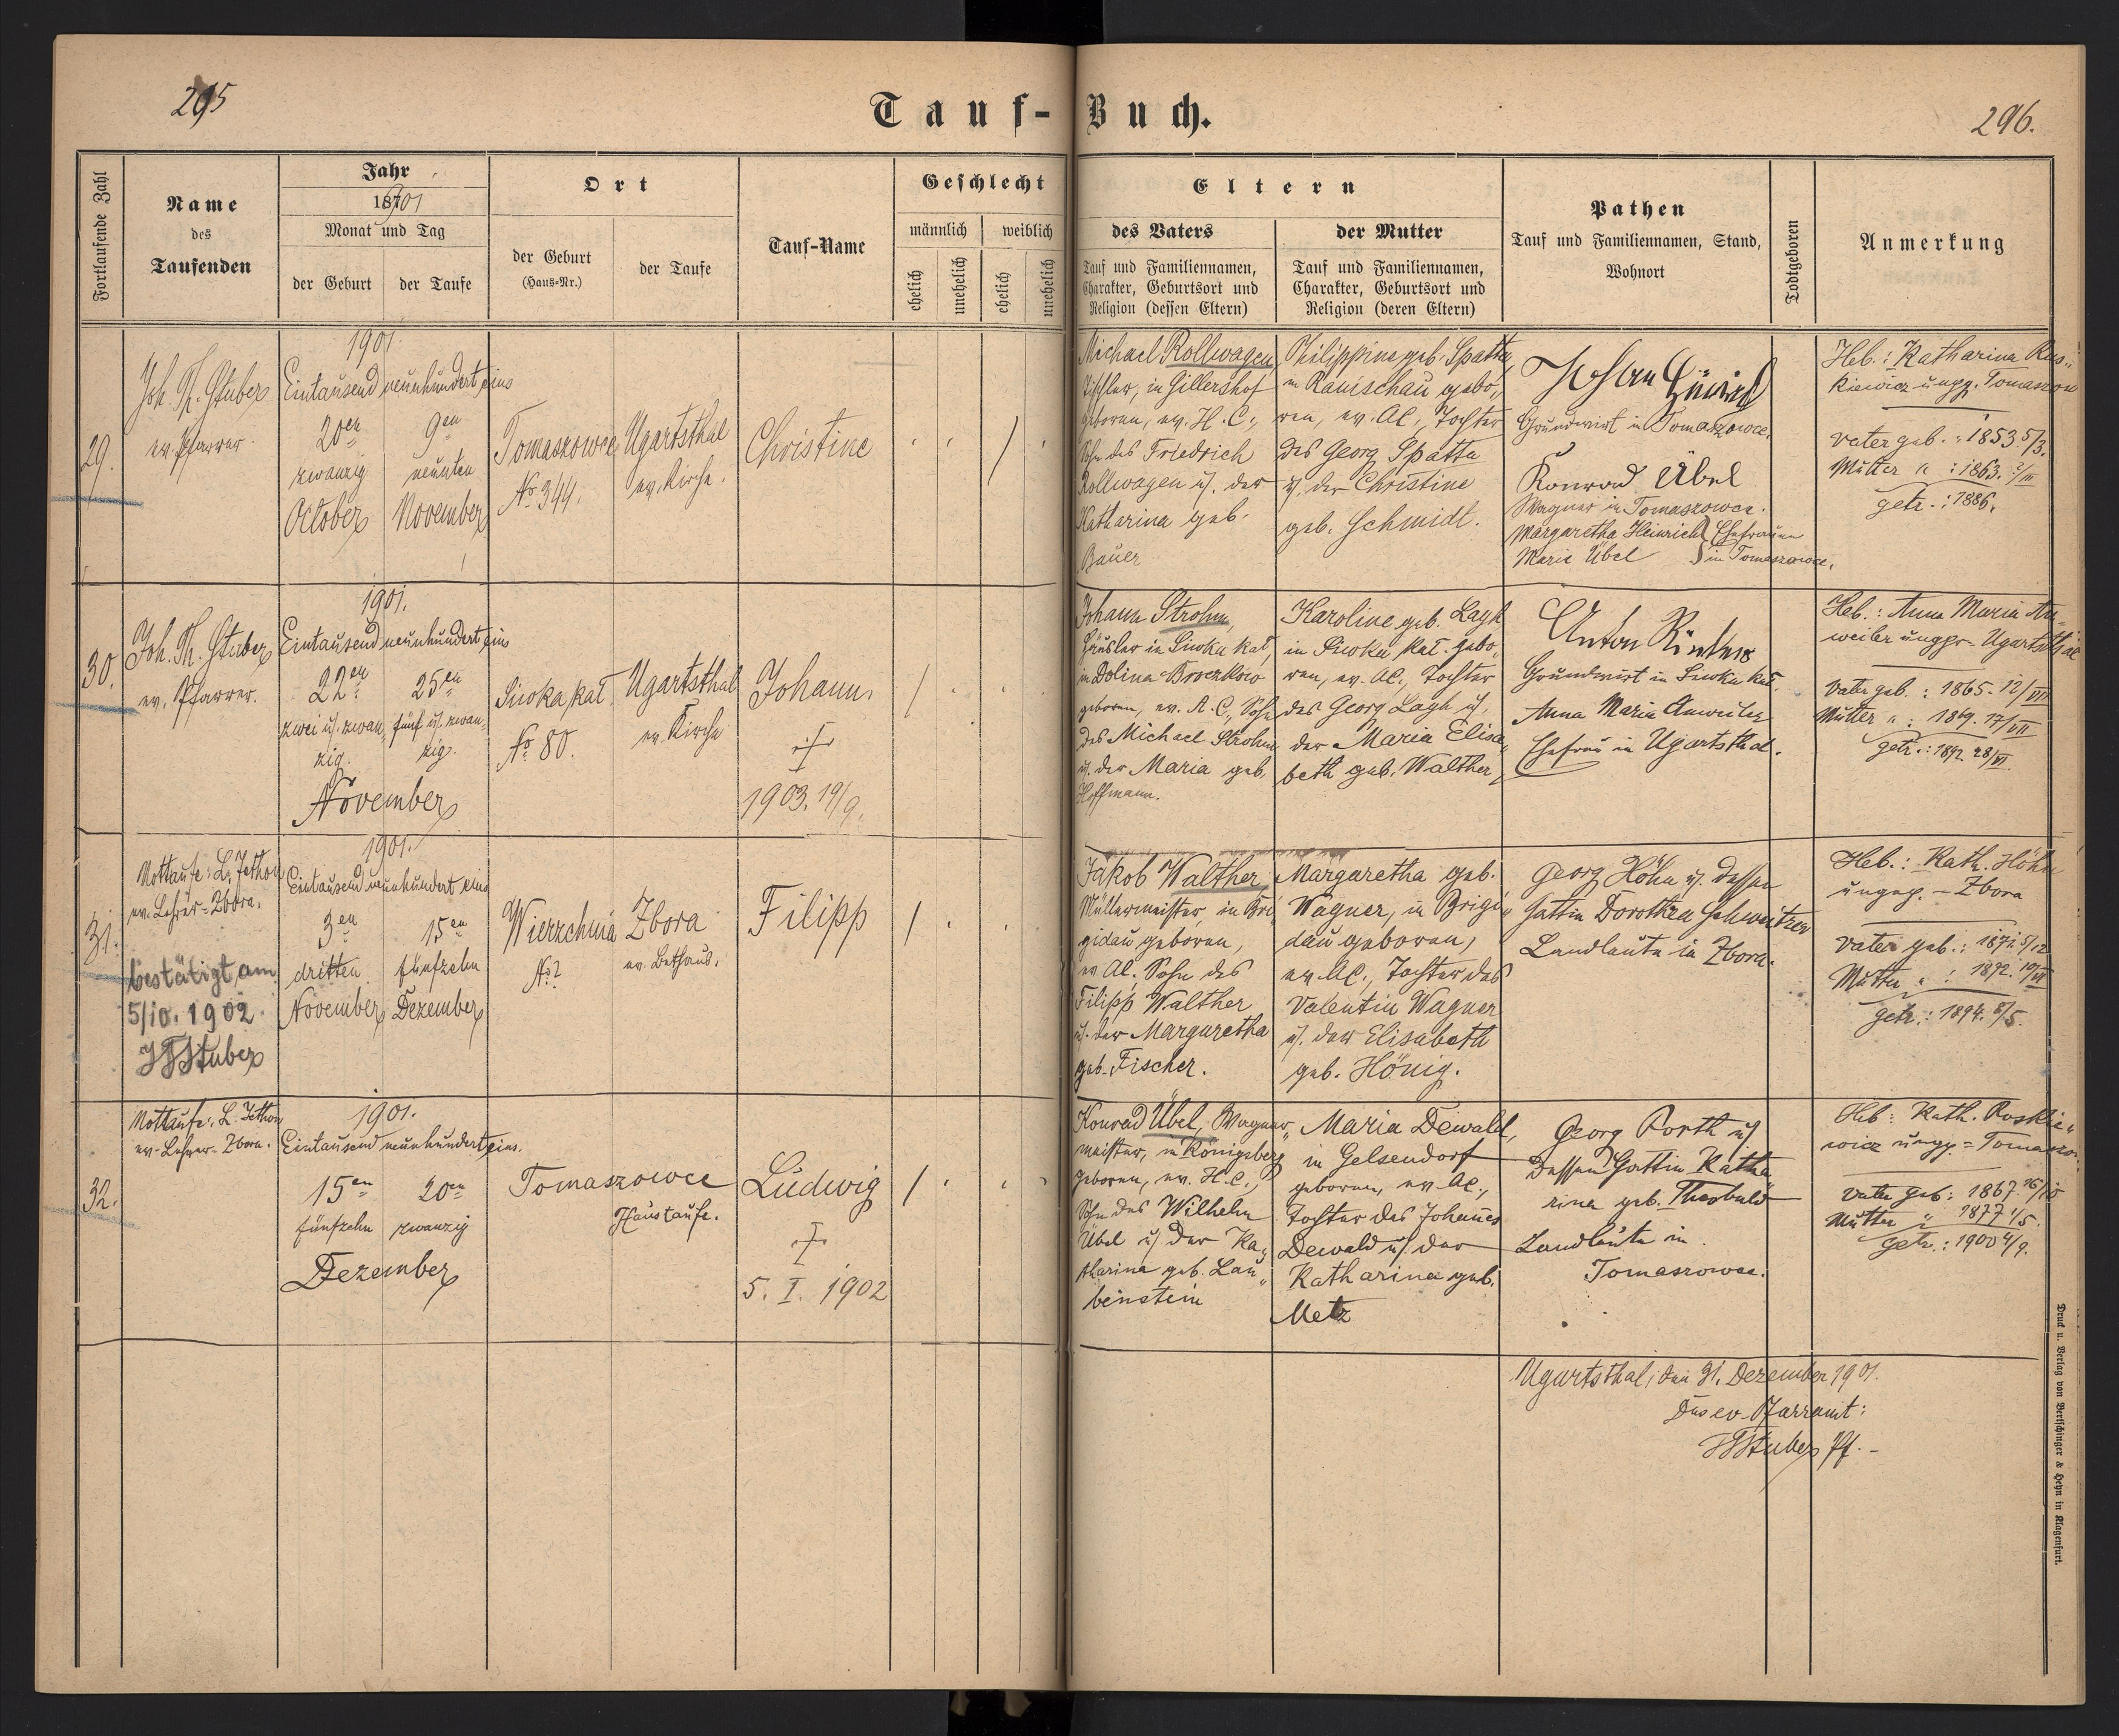 295
Tauf-Buch.
296.
Fortlaufende Zahl
Name
des
Taufenden
Jahr
1901
Monat und Tag
der Geburt
der Taufe
Ort
der Geburt
(Haus-Nr.)
der Taufe
Tauf-Name
Geschlecht
männlich
weiblich
ehelich
unehelich
ehelich
unehelich
Eltern
des Vaters
Tauf und Familiennamen,
Charakter, Geburtsort und
Religion (dessen Eltern)
der Mutter
Tauf und Familiennamen,
Charakter, Geburtsort und
Religion (deren Eltern)
Pathen
Tauf und Familiennamen, Stand,
Wohnort
Todtgeboren
Anmerkung
29.
Joh. Th. Stuber
ev. Pfarrer
1901
Eintausend neunhundert eins
20en
zwanzig
October
9en
neunten
November
Tomaszowce
No 344.
Ugartsthal
ev. Kirche.
Christine
Michael Rollwagen,
Tischler, in Gillershof
geboren, ev. H. C.,
Sohn des Friedrich
Rollwagen u. der
Katharina geb.
Bauer
Philippine geb. Spatta,
in Ranischau gebo„
ren, ev. AC., Tochter
des Georg Spatta
u. der Christine
geb. Schmidt.
Johan
Grundwirt in Tomaszowce.
Konrad Übel
Wagner in Tomaszowce.
Margaretha Heinrich } Ehefrauen
Marie Übel } in Tomaszowce.
Heb.: Katharina Rus„
kiewicz ungp. Tomaszow
Vater geb.: 1853 5/3.
Mutter " : 1863. 2/III
getr.: 1886.
30.
Joh. Th. Stuber
ev. Pfarrer.
1901.
Eintausend neunhundert eins
22en
zwei u. zwan
zig.
25en
fünf u. zwan„
zig.
November
Siwka kał
No 80.
Ugartsthal
ev. Kirche
Johann
†
1903. 19/9.
Johann Strohm,
Häusler in Siwka kał,
in Dolina-Broczkow
geboren, ev. A. C., Sohn
des Michael Strohm
u. der Maria geb.
Hoffmann.
Karoline geb. Lagh
in Siwka kał. gebo„
ren, ev. AC., Tochter
des Georg Lagh u.
der Maria Elisa„
beth geb. Walther
Anton
Grundwirt in Siwka kał.
Anna Maria Anweiler
Ehefrau in Ugartsthal.
Heb.: Anna Maria An„
weiler ungpr. Ugartsthal
Vater geb.: 1865. 12/VIII
Mutter " : 1869. 17/VII
getr.: 1892 28/VI.
31.
Nottaufe: L. Jethon
ev. Lehrer-Zbora.
bestätigt am
5/10. 1902.
JThStuber
1901.
Eintausend neunhundert eins
3en
dritten
November
15en
fünfzehn
Dezember
Wierzchnia
No ?
Zbora
ev. Bethaus.
Filipp
Jakob Walther,
Müllermeister, in Bri„
gidau geboren,
ev AC., Sohn des
Filipp Walther
u. der Margaretha
geb. Fischer.
Margaretha geb.
Wagner, in Brigi„
dau geboren,
ev. AC., Tochter des
Valentin Wagner
u. der Elisabeth
geb. Hönig.
Georg Höhn u. dessen
Gattin Dorothea Schweitzer
Landleute in Zbora.
Heb.: Kath. Höhn
ungep. - Zbora
Vater geb.: 1872. 5/12
Mutter " : 1872. 10/VII
getr.: 1894. 8/5.
32.
Nottaufe: L. Jethon
ev. Lehrer-Zbora.
1901.
Eintausend neunhundert eins.
15en
fünfzehn
20en
zwanzig
Dezember
Tomaszowce
Haustaufe.
Ludwig
†
5. I. 1902
Konrad Übel, Wagner„
meister, in Königsberg
geboren, ev. H. C.,
Sohn des Wilhelm
Übel u. der Ka„
tharina geb. Lau„
benstein
Maria Dewald,
in Gelsendorf
geboren, ev. AC.,
Tochter des Johannes
Dewald u. der
Katharina geb.
Metz
Georg Porth u.
dessen Gattin Katha„
rina geb. Theobald
Landleute in
Tomaszowce.
Heb: Kath. Ruskie„
wicz ungp. = Tomaszow.
Vater geb: 1867. 16/10
Mutter " 1877 1/5.
getr.: 1900 4/9.
Ugartsthal, den 31. Dezember 1901.
Das ev. Pfarramt:
JThStuber Pf.-
Druck u. Verlag von Bertschinger & Heyn in Klagenfurt.